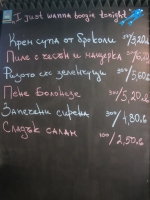 I just wanna boogie tonight
Крем супа от броколи 300/3,20лв
Пиле с чесън и мащерка 300/6,20
Ризото със зеленчуци 300/5,60лв
Пене Болонезе 300/5,20лв
Запечени сирена 300/4,80лв
Сладък салам 100/2,50лв